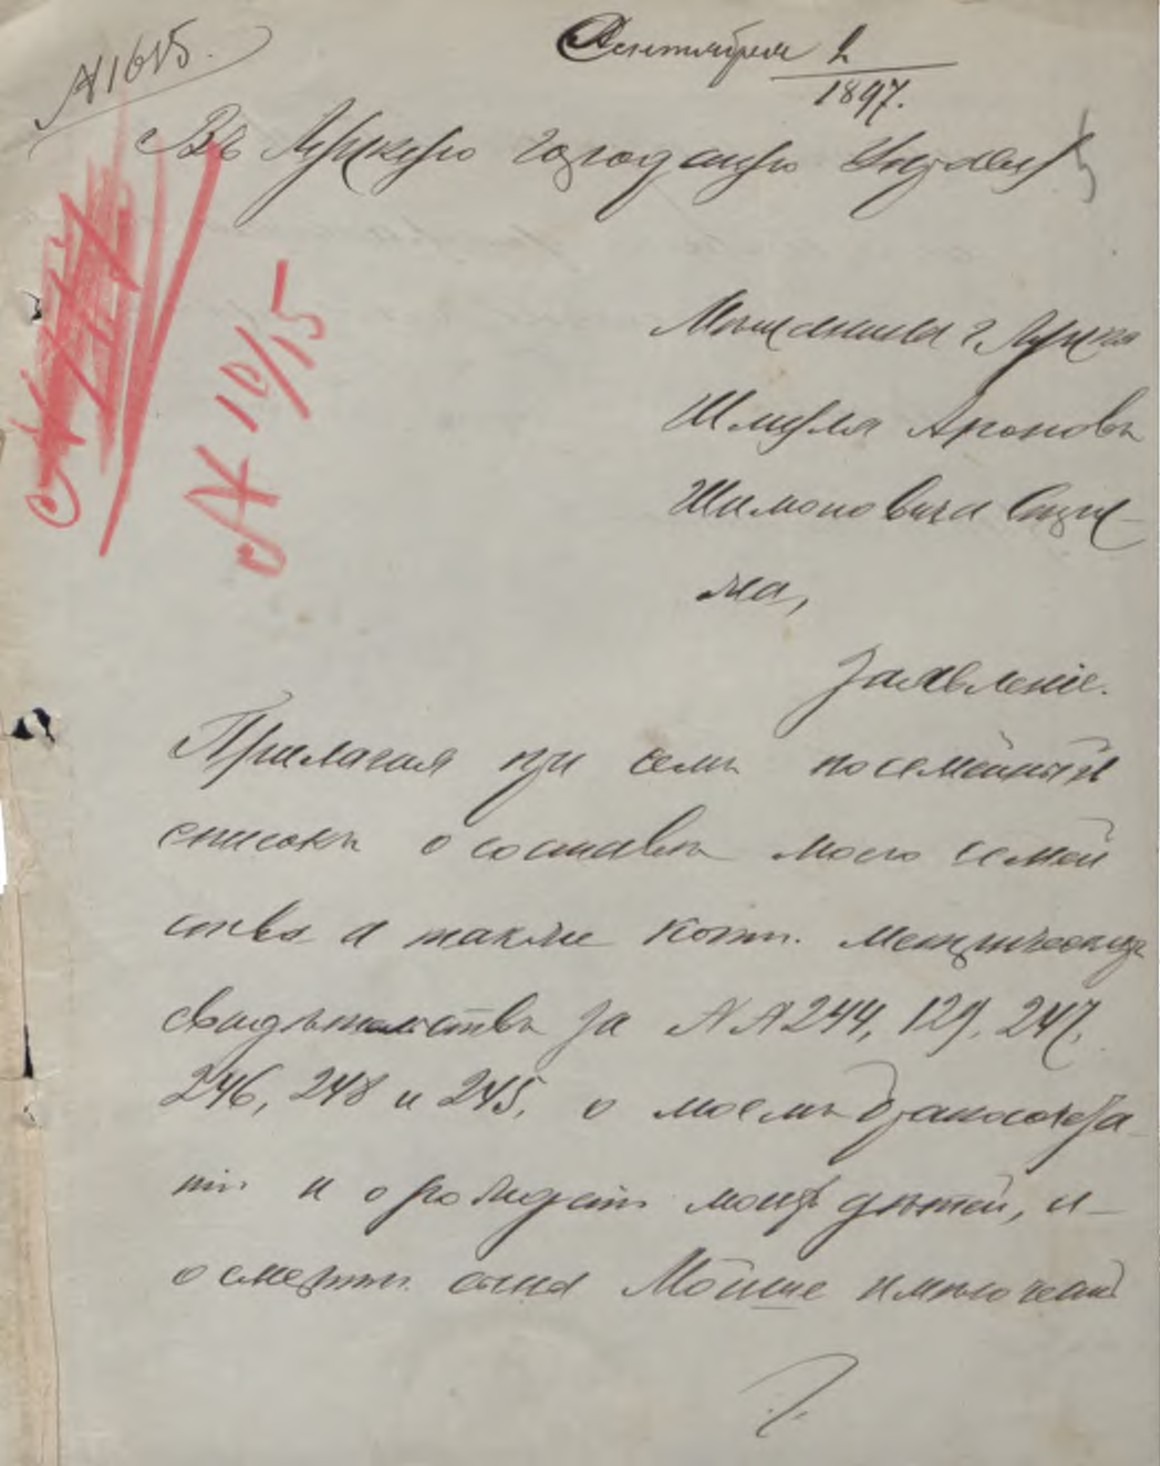 №1615.
Сентября 2
1897.
Въ Луцкую городскую Управу
№ 10/15
Мещанина г Луцка
Шмуля Ароновъ
Шимоновича
ма,
Заявленіе.
Прилагая при семъ посемейный
списокъ о составѣ моего семей
ства а также копіи метрическихъ
свидѣтельствъ за №№244, 129, 247,
246, 248 и 245, о моемъ бракосочета
ніи и о рожденіи моихъ дѣтей, и
о смерти сына Мойше имѣю честь